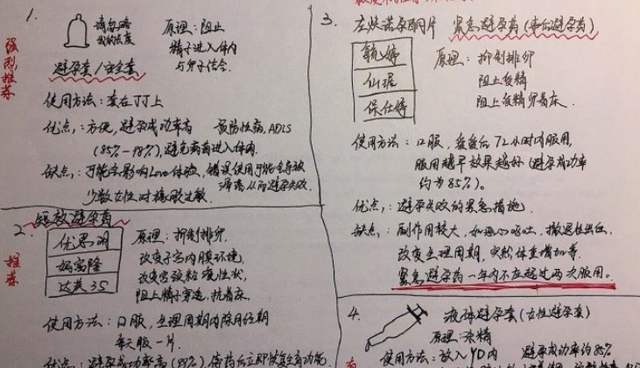 1.
请忽略
我的画技
原理：阻止
精子进入体内
与卵子结合.
避孕套/安全套
强烈推荐
使用方法：套在JJ上
优点：方便,避孕成功率高 预防性病,AIDS
(85%-98%),避免病毒进入体内.
缺点：可能会影响Love体验,错误使用可能会导致
少数女性对橡胶过敏 从而避孕失败.
2.
短效避孕药
推荐
优思明
妈富隆
达英35
原理：抑制排卵
改变子宫内膜环境
改变宫颈粘液性状,
阻止精子穿透,抗着床.
使用方法：口服,生理周期内除月经期
每天服一片.
优点：避孕成功率高(99%) 停药后立即恢复生育功能
3.
左炔诺孕酮片 紧急避孕药(事后避孕药)
毓婷
仙琚
保仕婷
原理：抑制排卵
阻止受精
阻止受精卵着床.
使用方法：口服,爱爱后72小时内服用
服用越早效果越好(避孕成功率
约为85%)。
优点：避孕失败的紧急措施.
缺点：副作用较大,如恶心呕吐,撤退性出血,
改变生理周期,突然体重增加等.
紧急避孕药一年内不应超过两次服用。
4.
液体避孕套(女性避孕套)
原理：杀精
使用方法：放入YD内 避孕成功率约85%